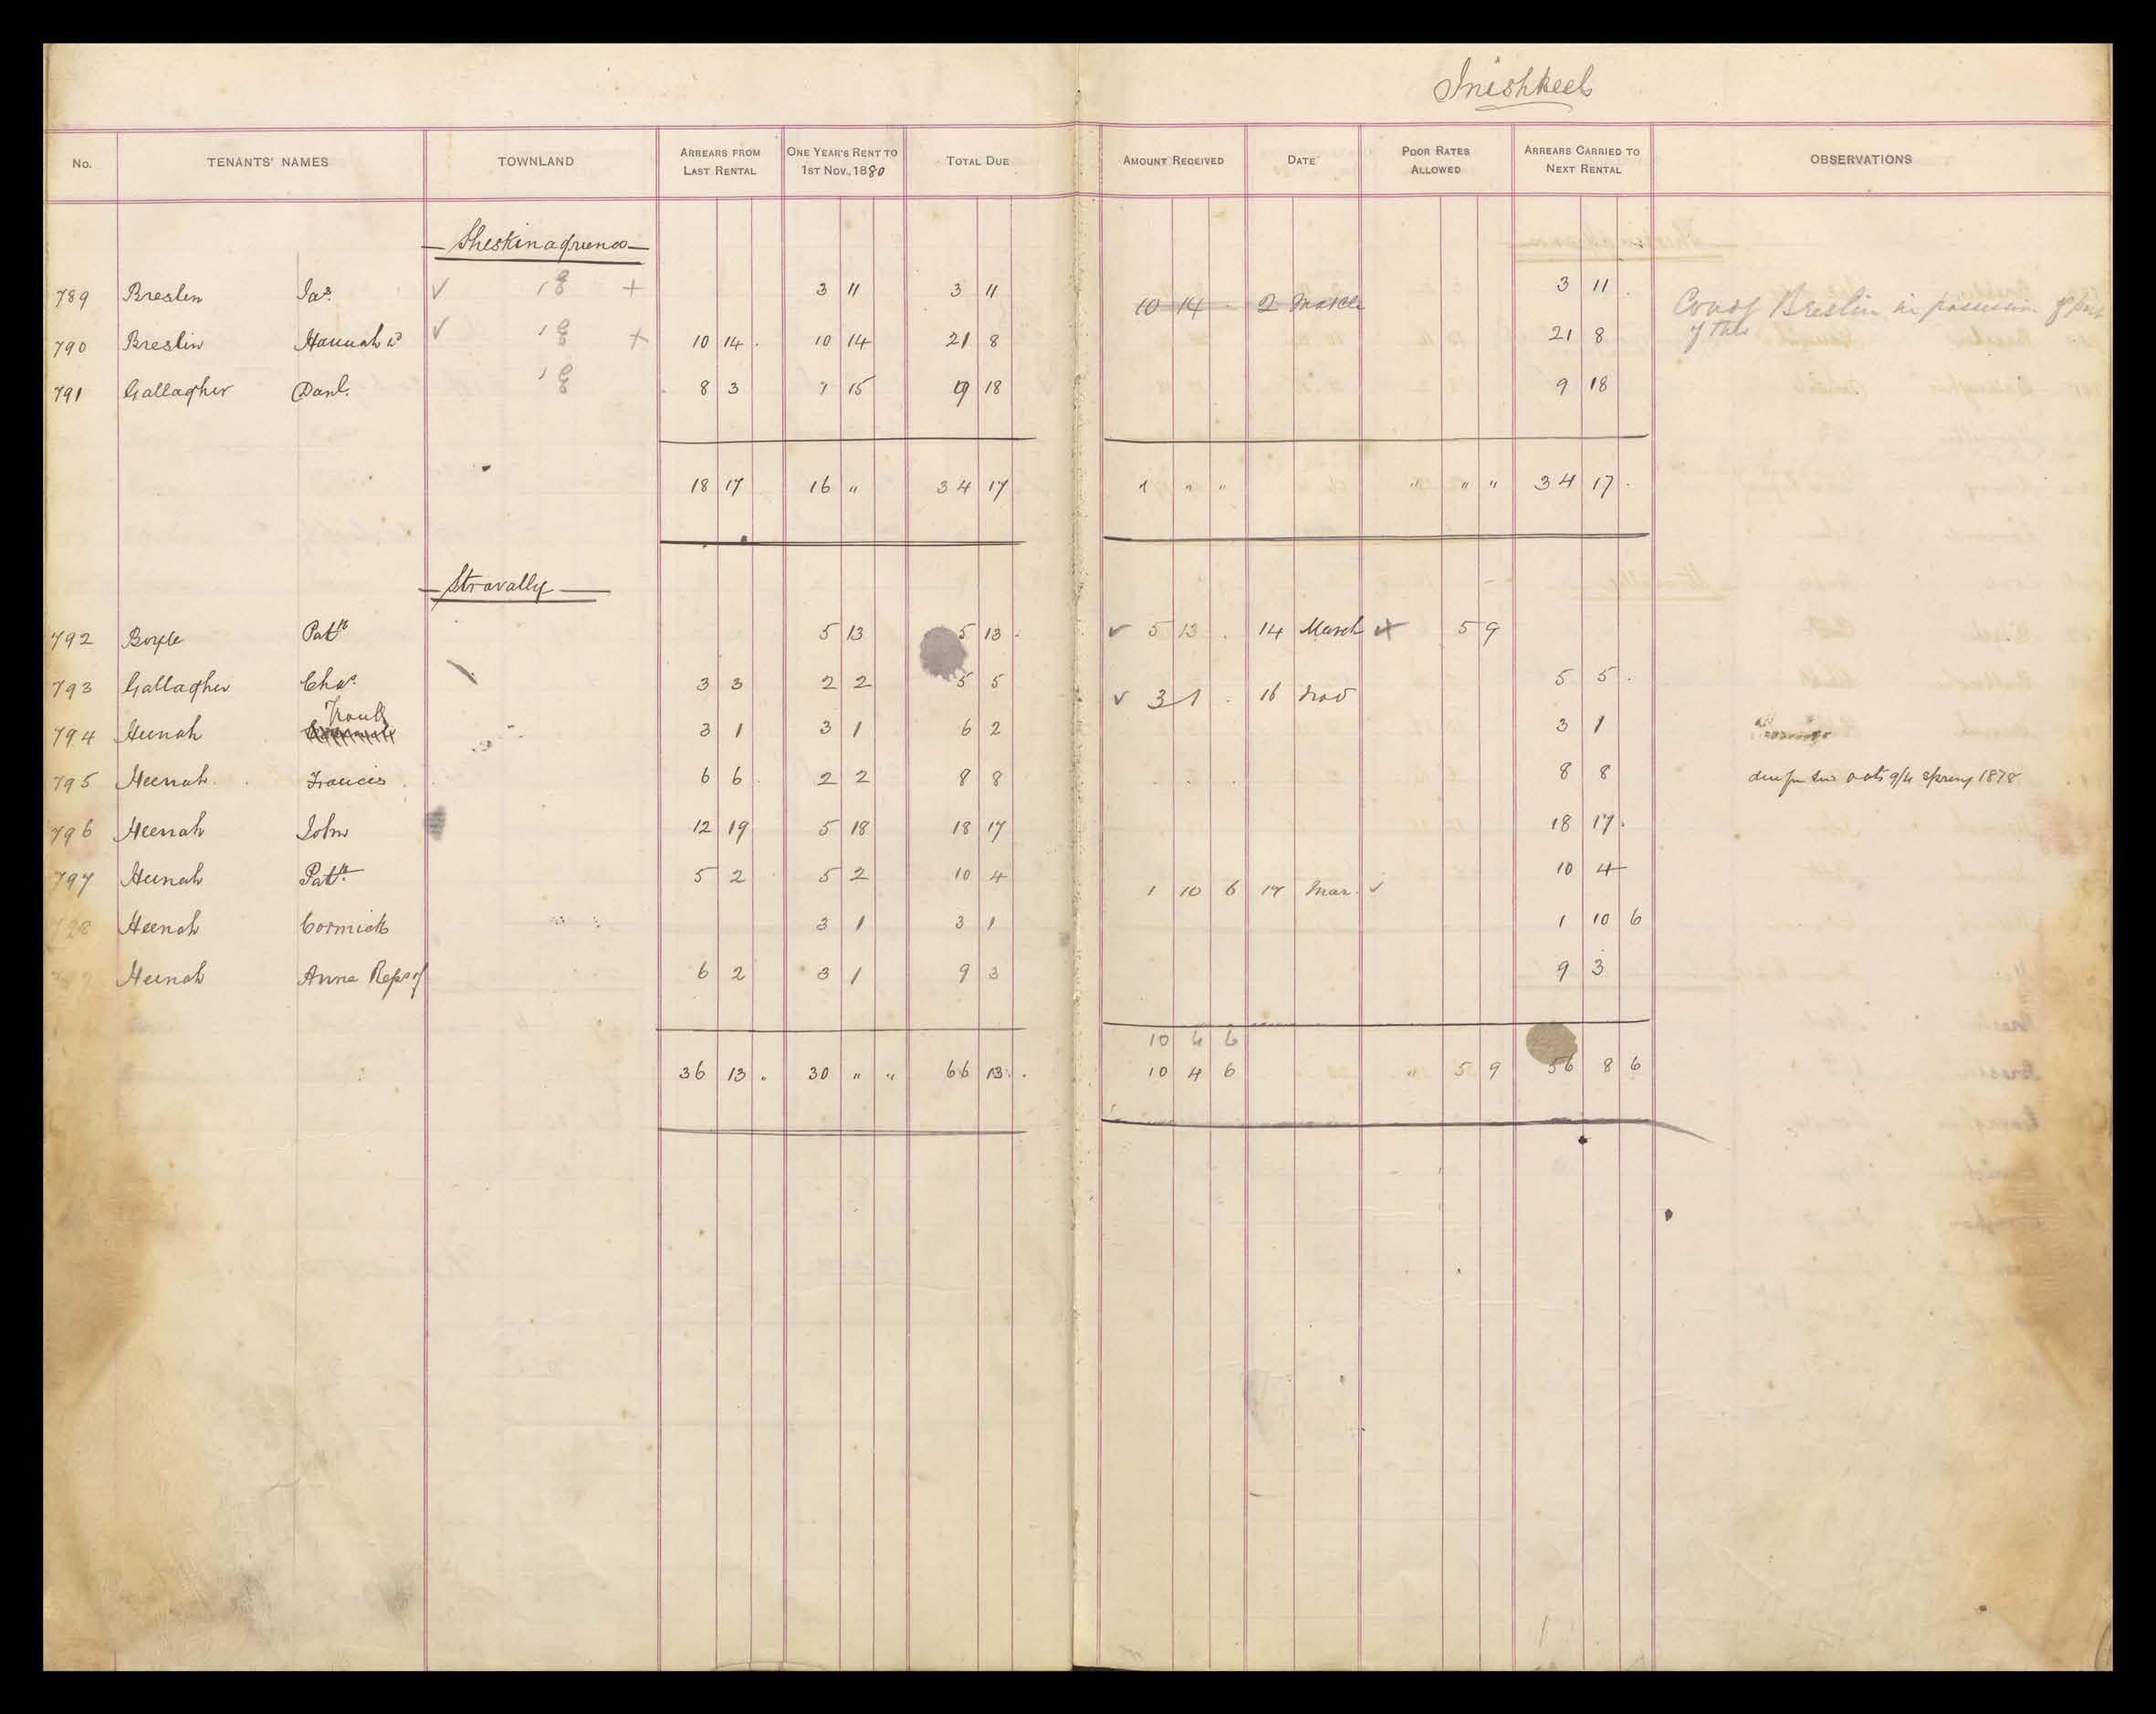 Inishkeel
No. TENANTS' NAMES TOWNLAND ARREARS FROM LAST RENTAL ONE YEAR'S RENT TO 1ST NOV., 1880 TOTAL DUE AMOUNT RECEIVED DATE POOR RATES ALLOWED ARREARS CARRIED TO NEXT RENTAL OBSERVATIONS
Sheskinagruna
789 Breslin Jas. ✓ + 3 11 3 11 10 14 2 March 3 11 Breslin in possession of part
790 Breslin Hannah wd ✓ + 10 14 10 14 21 8 21 8 of this
791 Gallagher Danl. 8 3 1 15 9 18 9 18
18 17 16 " 34 17 " " " " " " 34 17
Stravally
792 Boyle Patk 5 13 5 13 ✓ 5 13 14 March 5 9
793 Gallagher Chas. 3 3 2 2 5 5 5 5
✓ 3 1 16 Nov
794 Heenah 3 1 3 1 6 2 3 1
795 Heenah Francis 6 6 2 2 8 8 8 8 oats 9/4 spring 1878
796 Heenah John 12 19 5 18 18 17 18 17
797 Heenah Patk 5 2 5 2 10 4 10 4
1 10 6 17 Mar. ✓
798 Heenah Cormick 3 1 3 1 1 10 6
Heenah Anne Reps of 6 2 3 1 9 3 9 3
10 4 6
36 13 30 " " 66 13 10 4 6 " 5 9 56 8 6